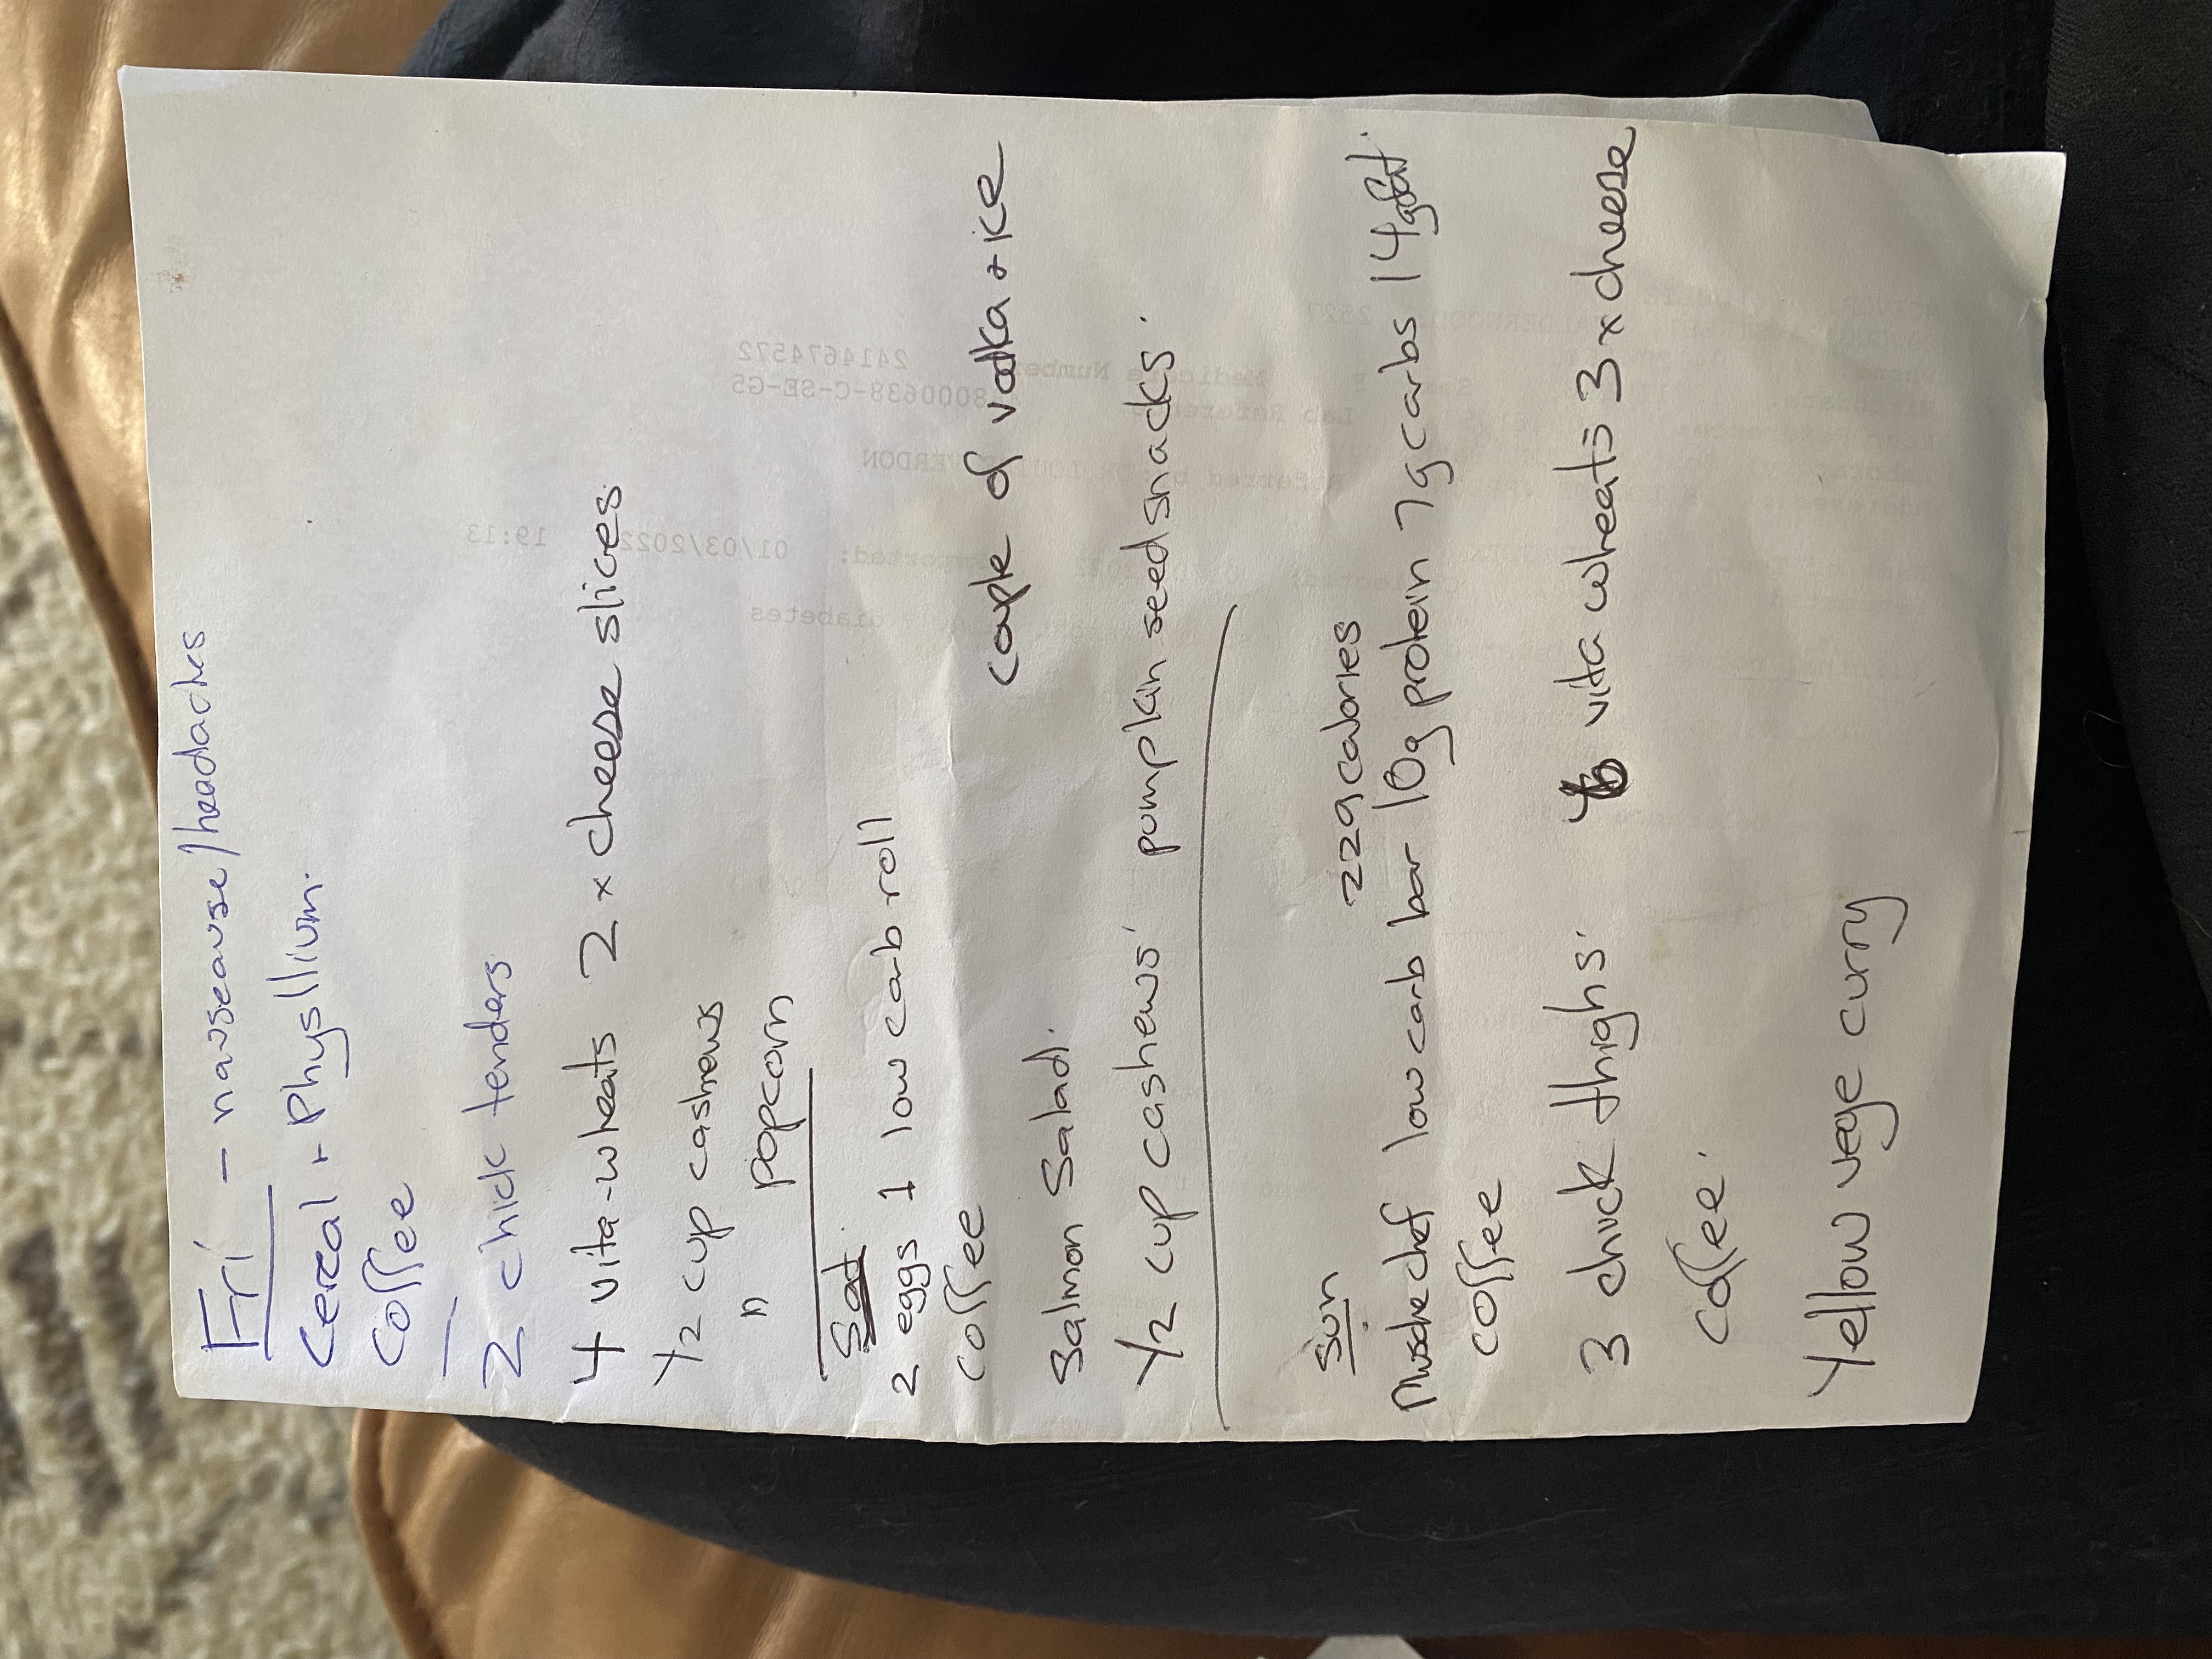 Fri - nauseause/headaches
Cereal + Physllium.
Coffee
2 chick tenders
4 vita-wheats 2 x cheese slices.
1/2 cup cashews
" popcorn
Sat
2 eggs 1 low carb roll
coffee
couple of vodka + ice
Salmon Salad.
1/2 cup cashews' pumpkin seed snacks.
Sun
229 calories
Muscle chef low carb bar 10g protein 7g carbs 14g fat.
coffee
3 chick thighs. vita wheats 3 x cheese
coffee.
Yellow vege curry
2414674572
Medicare Number
Lab Reference
01/03/2022 19:13
diabetes